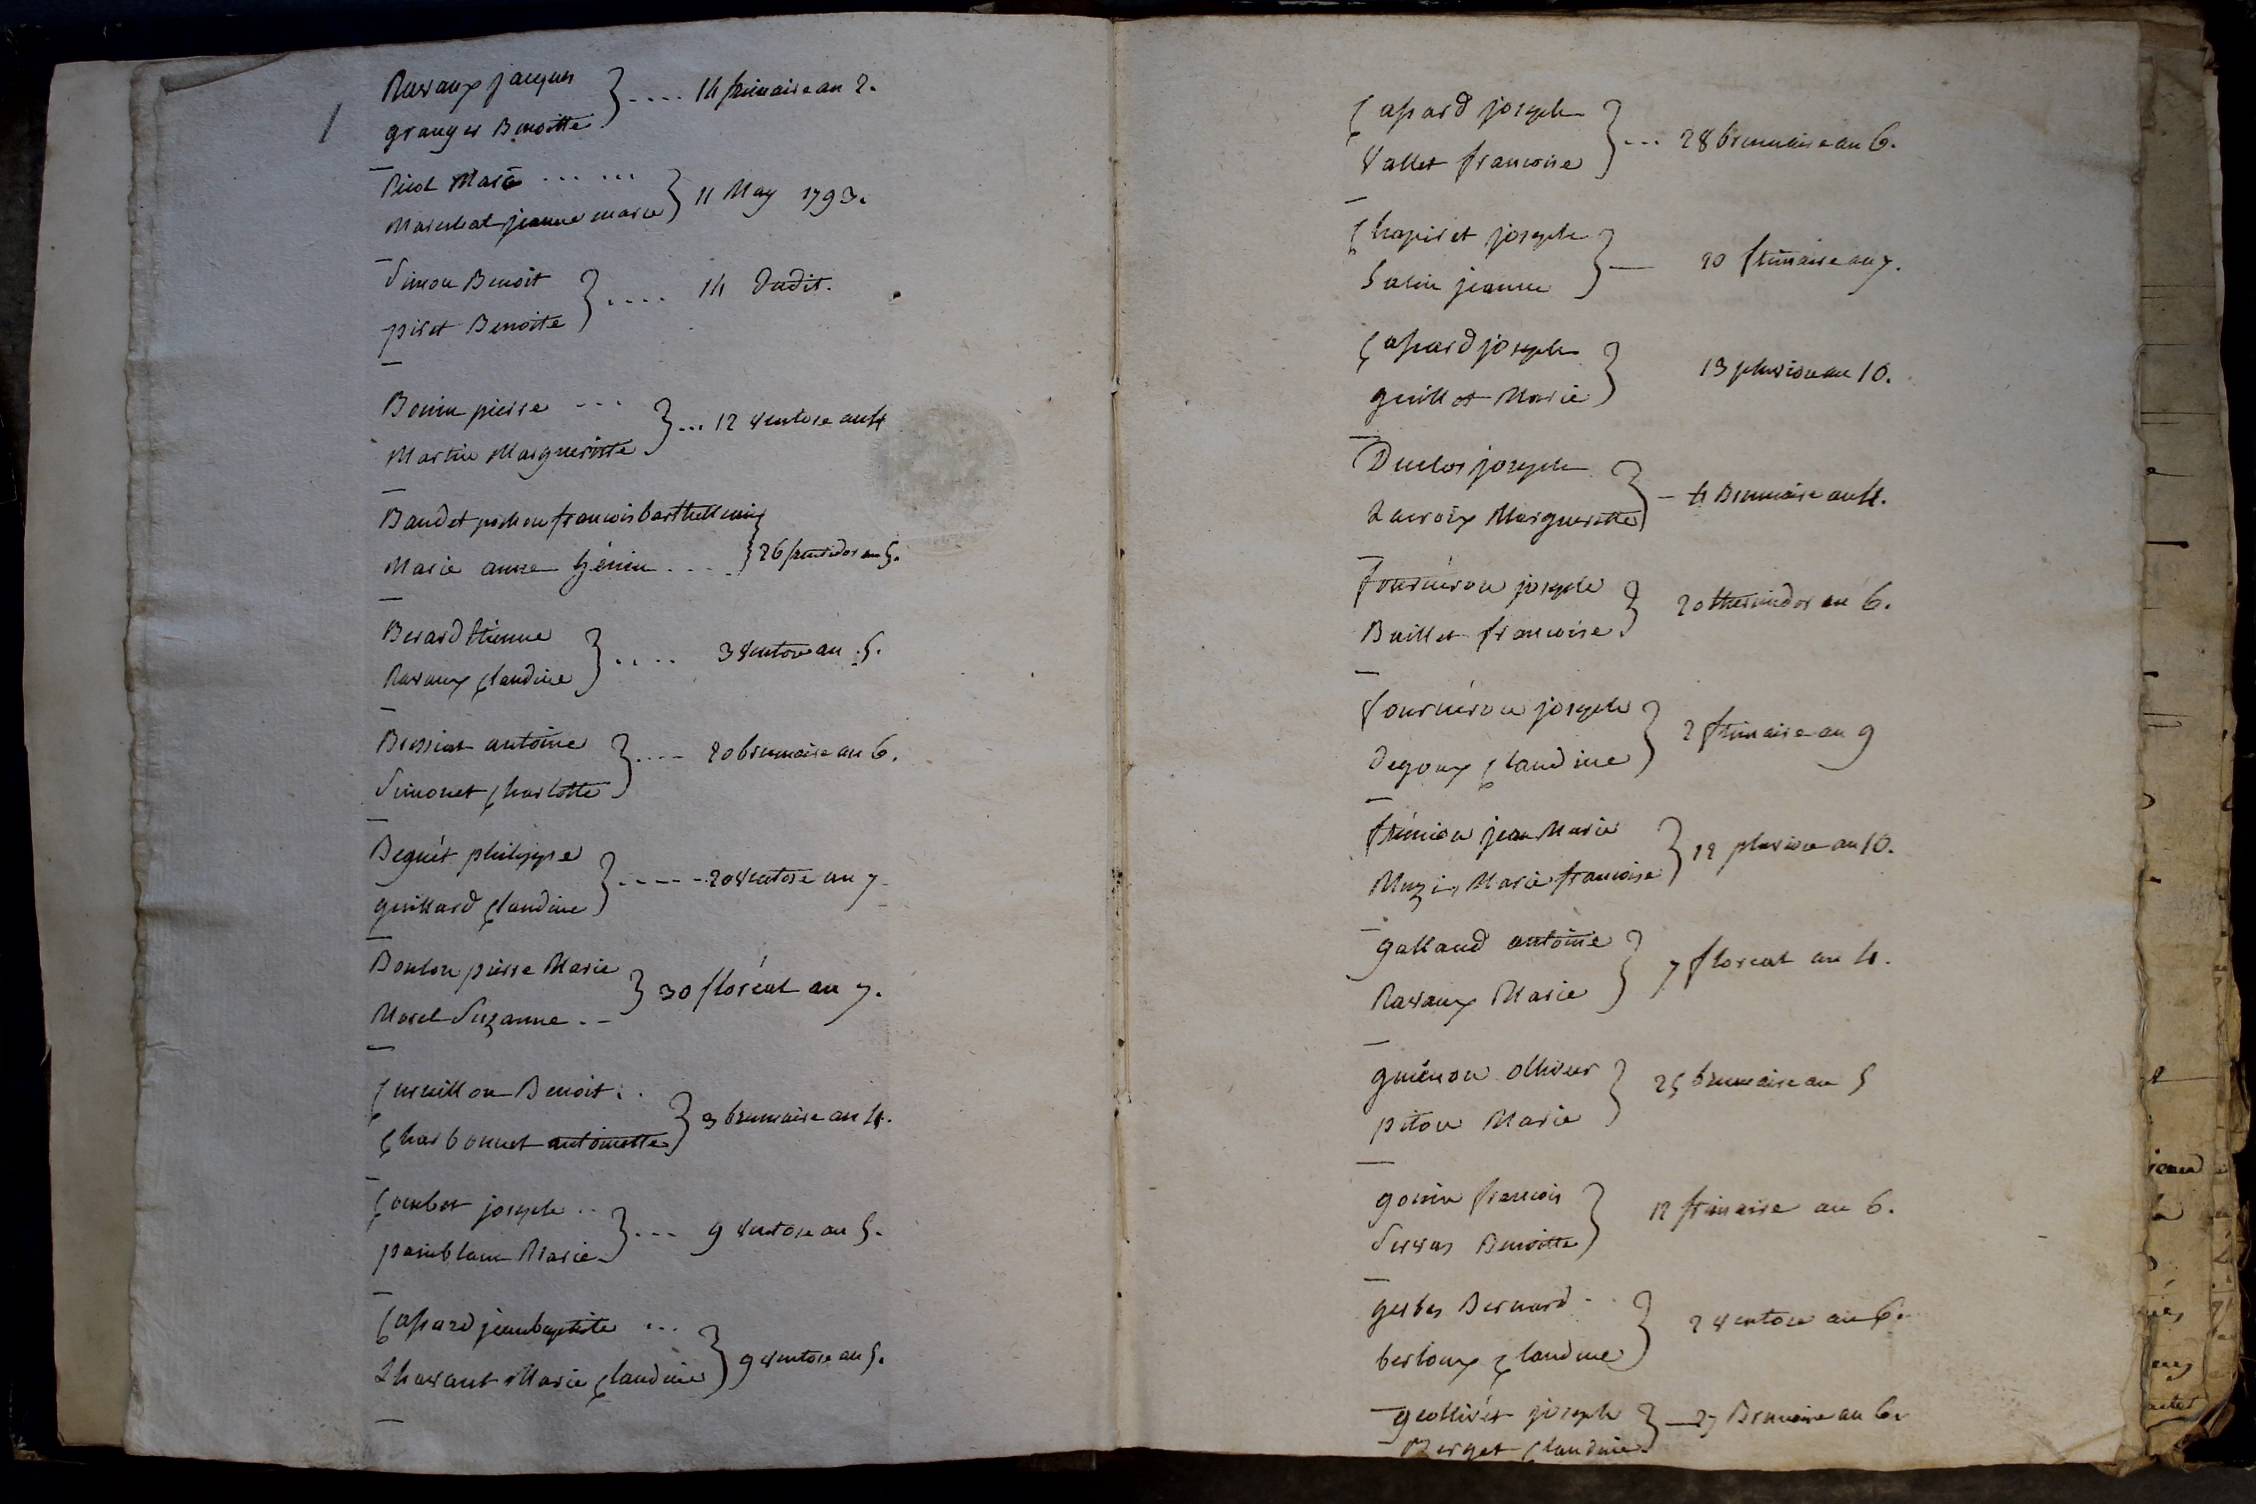 Ravaux jacques } .... 14 frimaire an 2.
granger Benoitte
Picot Marc ... ... } 11 May 1793.
Marechal jeanne marie
Simon Benoit } .... 14 Dudit.
piret Benoite
Bonin pierre --- } ... 12 ventose an 4
Martin Marguerite
Baudet pochon francois barthellemi } 26 fructidor an 5.
Marie anne Génin . . . .
Berard Etienne } .... 3 ventose an 5.
Ravaux Claudine
Bressiat antoine } .... 20 brumaire an 6.
Simonet Charlotte
Beguét philippe } ..... 20 ventose an 7
guillard Claudine
Boulon pierre Marie } 30 floréal an 7.
Morel Suzanne . --
Curnillon Benoit . . } 3 brumaire an 4.
Charbonnet antoinette
Combet joseph .. } ... 9 ventose an 5.
painblanc Marie
Capard jean baptiste ... } 9 ventose an 5.
Thavant Marie Claudine
Capard joseph } ... 28 brumaire an 6.
Vallet francoise
Chapiret joseph } — 20 frimaire an 7.
Salin jeanne
Capard joseph } 13 pluviose an 10.
guillot Marie
Duclos joseph } — 4 Brumaire an 4.
Lacroix Marguerite
fournéron joseph } 20 thermidor an 6.
Buillet francoise
fournéron joseph } 2 frimaire an 9
Degoux Claudine
frémion jean Marie } 12 pluviose an 10.
Muzi, Marie francoise
galland antoine } 7 floreal an 4.
Ravaux Marie
guénon ollivier } 25 brumaire an 5
piton Marie
gonin francois } 12 frimaire an 6.
Servas Benoitte
gerbes Bernard } 2 ventose an 6.
berloux Claudine
grollivét joseph } — 27 Brumaire an 6
Berget Claudine